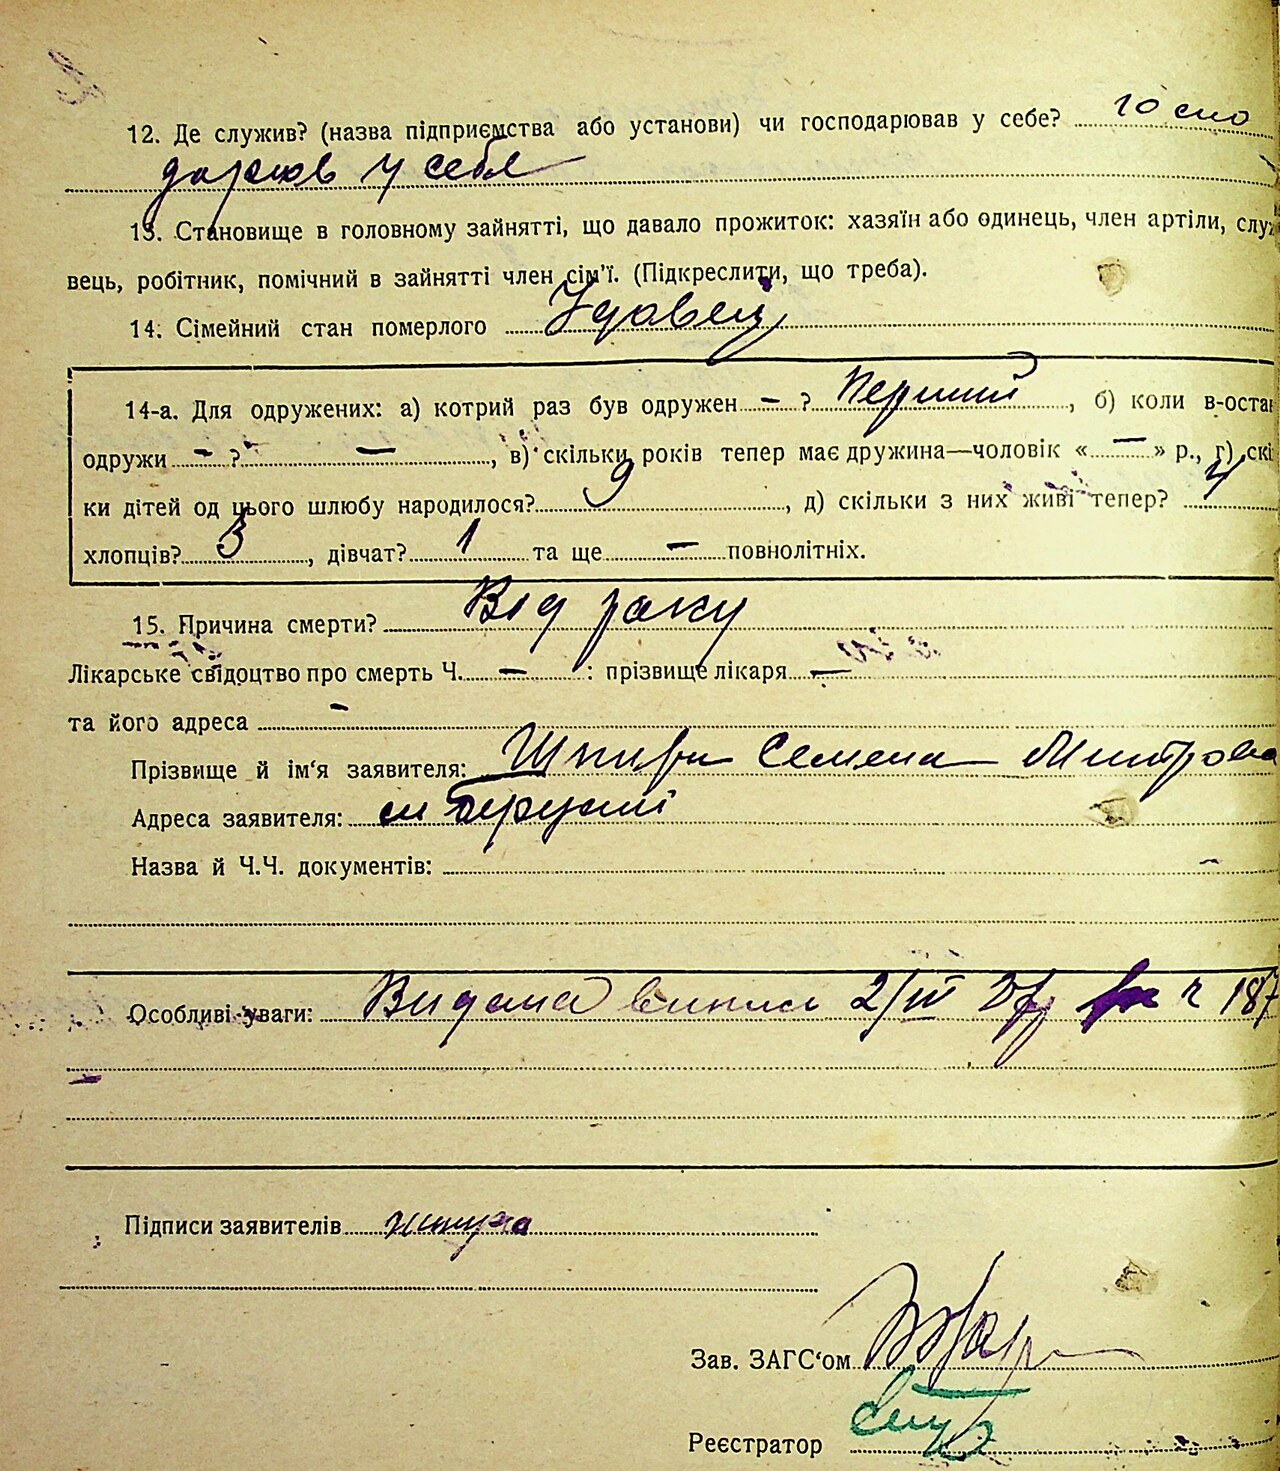 12. Де служив? (назва підприємства або установи) чи господарював у себе? госпо
дарюв у себе
13. Становище в головному зайнятті, що давало прожиток: хазяїн або одинець, член артіли, служ
вець, робітник, помічний в зайнятті член сім'ї. (Підкреслити, що треба).
14. Сімейний стан померлого Удовець
14-а. Для одружених: а) котрий раз був одружен - ? Перший, б) коли в-оста
одружи - ? —, в) скільки років тепер має дружина—чоловік « — » р., г) скі
ки дітей од цього шлюбу народилося? 9, д) скільки з них живі тепер? 4
хлопців? 3, дівчат? 1 та ще — повнолітніх.
15. Причина смерти? Від раку
Лікарське свідоцтво про смерть Ч. — : прізвище лікаря —
та його адреса -
Прізвище й ім'я заявителя: Шпира Семена Митрова
Адреса заявителя: см
Назва й Ч.Ч. документів: -
Особливі уваги: Видана виписи 2/III 37 ч 187
Підписи заявителів
Зав. ЗАГС'ом
Реєстратор